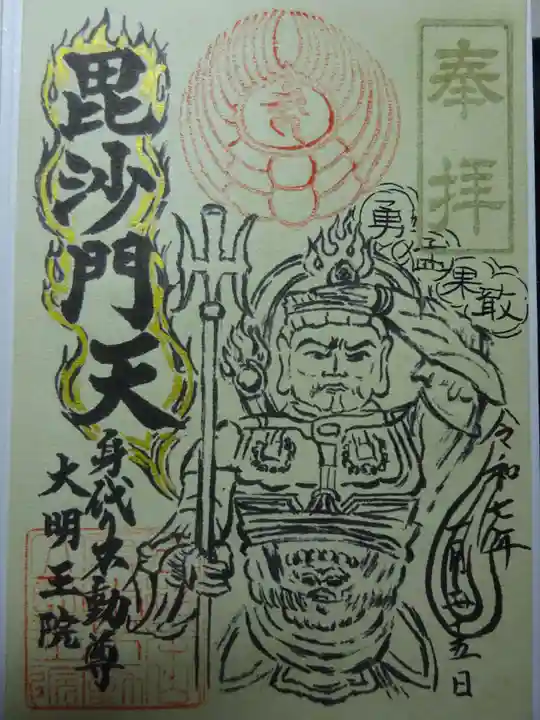 奉拝
勇猛果敢
令和七年
一月廿五日
毘沙門天
身代り不動尊
大明王院